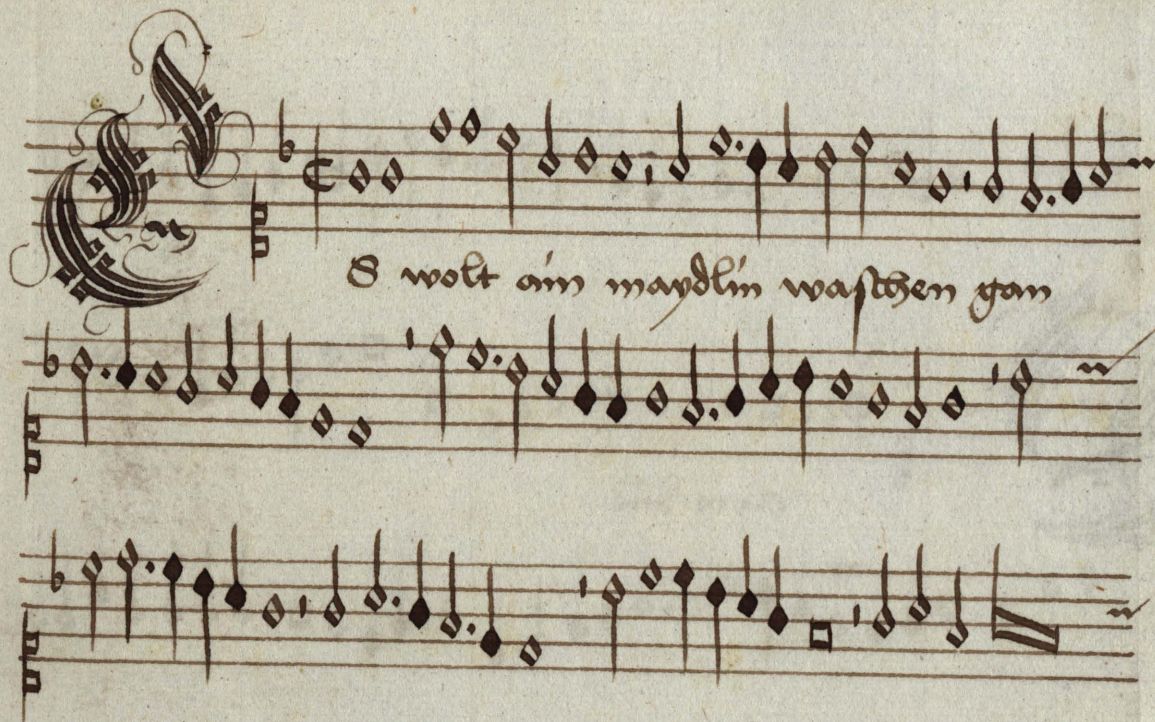 ES wolt ain maydlin waschen gan